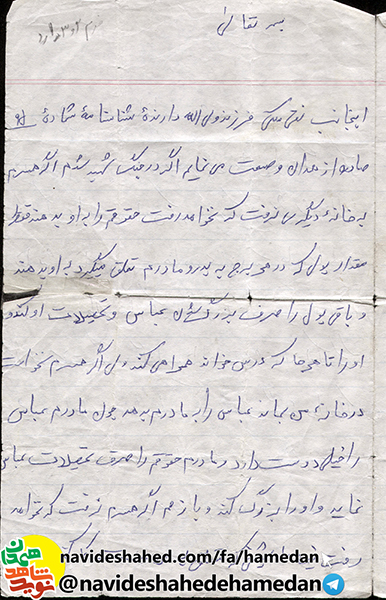 بسمه تعالی
اینجانب نقی فرزند ولی الله دارنده شناسنامه شماره
صادره از همدان وصیت می نمایم اگر در جنگ شهید شدم اگر همسرم
به خانه دیگری رفت که نخواهد رفت حقوقم را به او بدهند فقط
مقدار پول که در هر برج به پدر و مادرم تعلق میگیرد به او بدهند
و باقی پول را صرف بزرگ شدن عباس و تحصیلات او کنند و
او را تا هر جا که درس خواند همراهی کنند ولی اگر همسرم نخواست
در خانه من بماند عباس را به مادرم بدهد چون مادرم عباس
را خیلی دوست دارد و مادرم حقوقم را صرف تحصیلات عباس
نماید و او را بزرگ کند و باز هم اگر همسرم نرفت که نخواهد
رفت
navideshahed.com/fa/hamedan
@navideshahedehamedan
نوید شاهد همدان